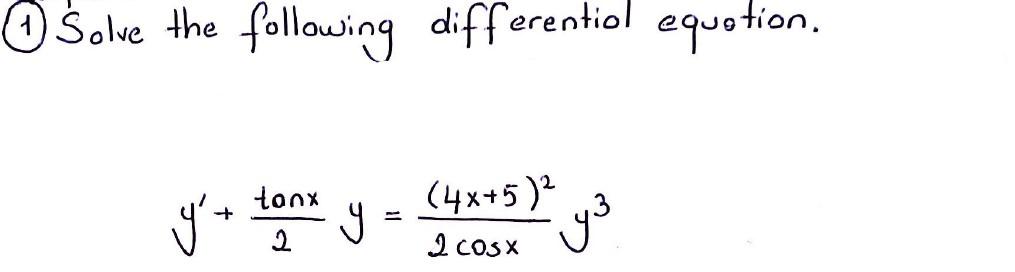 ① Solve the following differential equation.
y' + tanx/2 y = (4x+5)²/2cosx y³